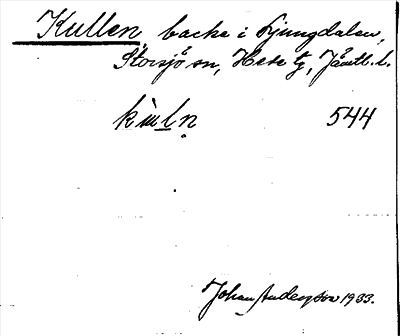 Kullen backe i Ljungdalen,
Storsjö sn, Hede tg, Jämtl. l.
kùḷṇ 544
Johan Anderson 1933.